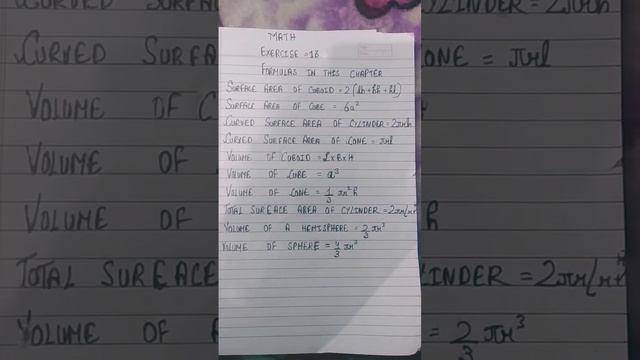 MATH
EXERCISE = 18
FORMULAS IN THIS CHAPTER
SURFACE AREA OF CUBOID = 2(lb + bh + hl)
SURFACE AREA OF CUBE = 6a²
CURVED SURFACE AREA OF CYLINDER = 2πrh
CURVED SURFACE AREA OF CONE = πrl
VOLUME OF CUBOID = L×B×H
VOLUME OF CUBE = a³
VOLUME OF CONE = 1/3 πr²h
TOTAL SURFACE AREA OF CYLINDER = 2πr(r+
VOLUME OF A HEMISPHERE = 2/3 πr³
VOLUME OF SPHERE = 4/3 πr³